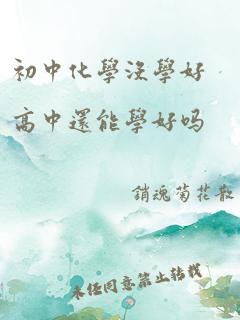 初中化學沒學好
高中還能學好吗
銷魂菊花散
未任同意禁止转载